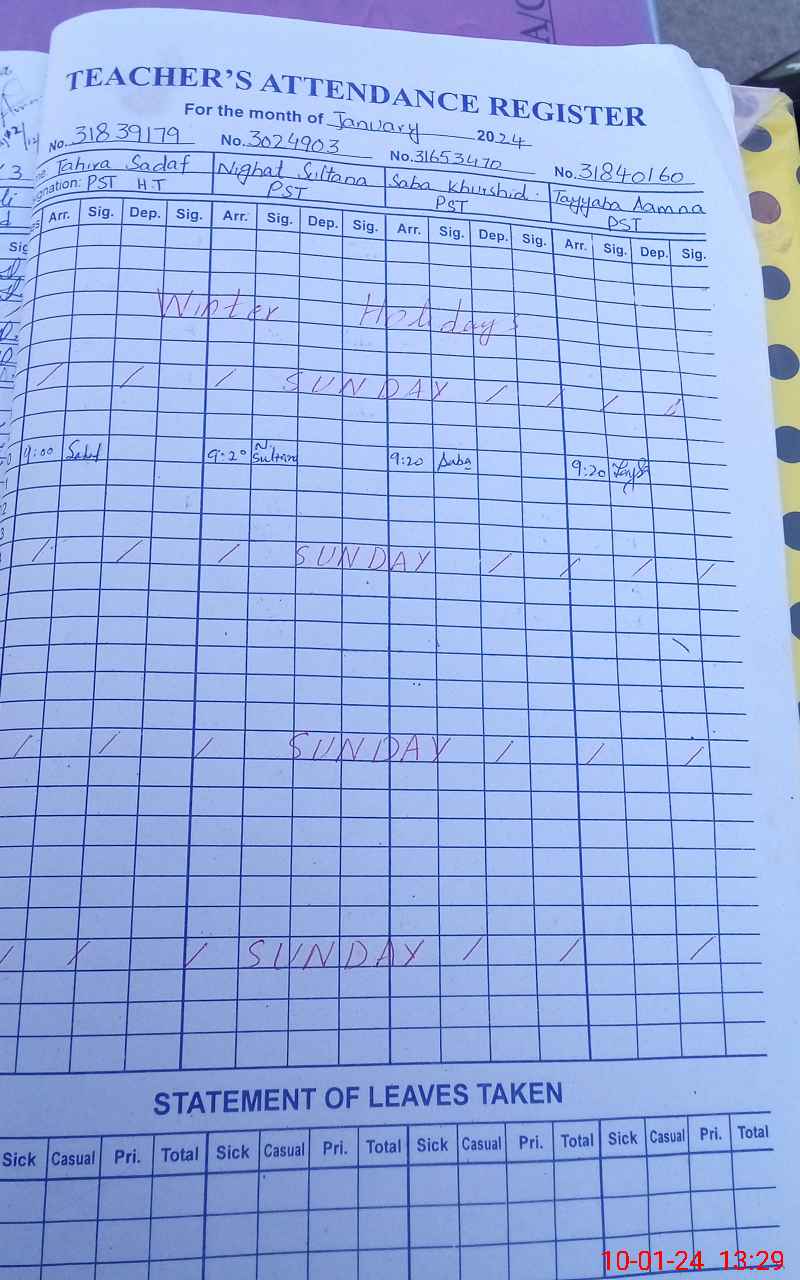 A/C
TEACHER'S ATTENDANCE REGISTER
For the month of January 2024
No. 31839179 No. 3024903 No. 31653470 No. 31840160
Tahira Sadaf Nighat Sultana Saba Khurshid. Tayyaba Aamna
gnation: PST H.T PST PST PST
Arr. Sig. Dep. Sig. Arr. Sig. Dep. Sig. Arr. Sig. Dep. Sig. Arr. Sig. Dep. Sig.
Sig
Winter Holidays
/ / / SUNDAY / / / /
9:00 Sadaf 9:20 N. Sultana 9:20 Saba 9:20
/ / / SUNDAY / / / /
/ / / SUNDAY / / /
/ / / SUNDAY / / /
STATEMENT OF LEAVES TAKEN
Sick Casual Pri. Total Sick Casual Pri. Total Sick Casual Pri. Total Sick Casual Pri. Total
10-01-24 13:29